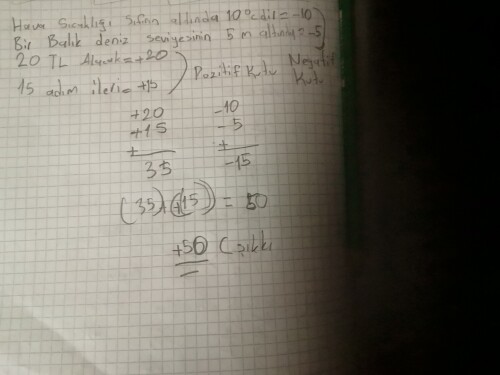 Hava Sıcaklığı Sıfırın altında 10°C dir = -10
Bir Balık deniz seviyesinin 5 m altında = -5
Negatif Kutu
20 TL Alacak = +20
15 adım ileri = +15
Pozitif Kutu
+20
+15
+
35
-10
-5
+
-15
(35) + (+15) = 50
+50 C şıkkı